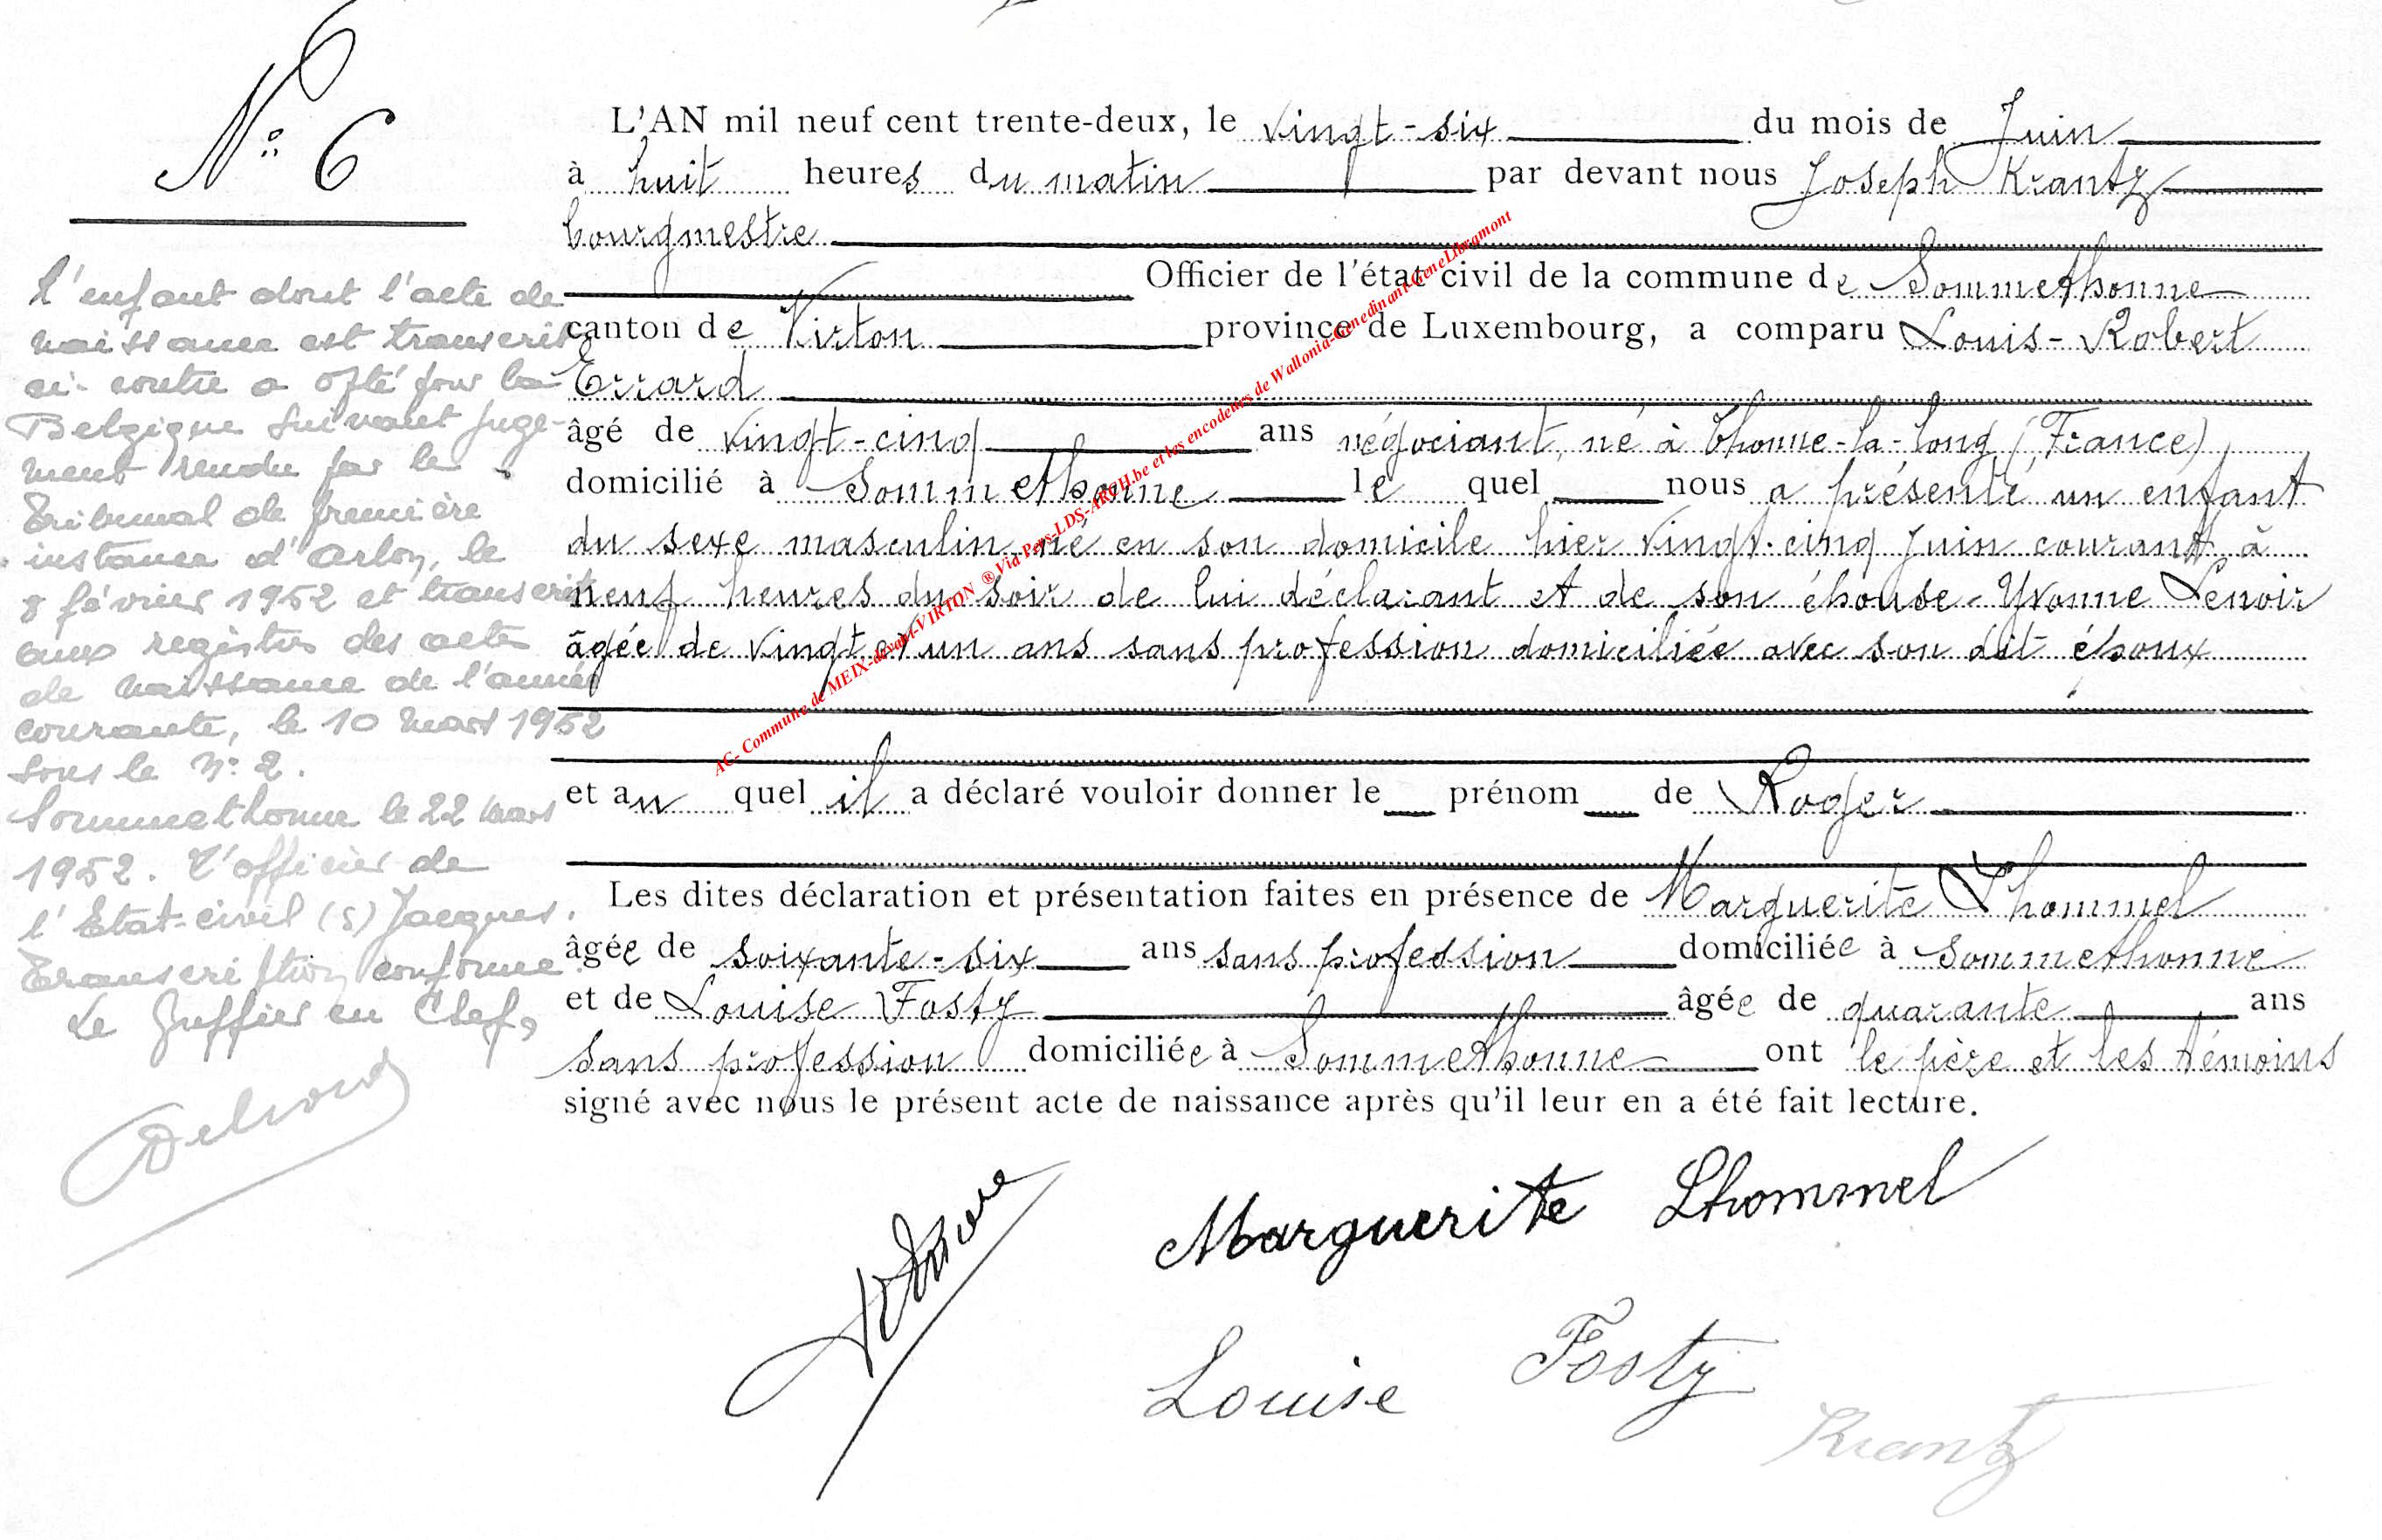 N° 6
L'AN mil neuf cent trente-deux, le vingt-six du mois de Juin
à huit heures du matin par devant nous Joseph Krantz
bourgmestre
Officier de l'état civil de la commune de Sommethonne
canton de Virton province de Luxembourg, a comparu Louis-Robert
Errard
âgé de vingt-cinq ans négociant, né à Thonne-la-Long (France)
domicilié à Sommethonne le quel nous a présenté un enfant
du sexe masculin, né en son domicile hier vingt-cinq Juin courant à
neuf heures du soir de lui déclarant et de son épouse Yvonne Lenoir
âgée de vingt et un ans sans profession domiciliée avec son dit époux
et au quel il a déclaré vouloir donner le prénom de Roger
Les dites déclaration et présentation faites en présence de Marguerite Lhommel
âgée de soixante-six ans sans profession domiciliée à Sommethonne
et de Louise Fosty âgée de quarante ans
sans profession domiciliée à Sommethonne ont le père et les témoins
signé avec nous le présent acte de naissance après qu'il leur en a été fait lecture.
Marguerite Lhommel
Louise Fosty
Krantz
L'enfant dont l'acte de
naissance est transcrit
ci-contre a opté pour la
Belgique suivant juge-
ment rendu par le
Tribunal de première
instance d'Arlon, le
8 février 1952 et transcrit
aux registres des actes
de naissance de l'année
courante, le 10 mars 1952
sous le N° 2.
Sommethonne le 22 mars
1952. L'officier de
l'Etat-civil (s) Jacques.
Transcription conforme.
Le Greffier en Chef,
AC- Commune de MEIX-devant-VIRTON ® Via Pers-LDS-ARCH.be et les encodeurs de Wallonia-Genedinant-GeneLibramont